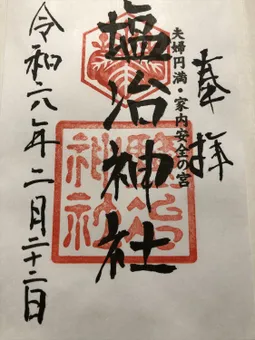 奉拝
夫婦円満・家内安全の宮
塩冶神社
塩冶神社
令和六年二月二十二日